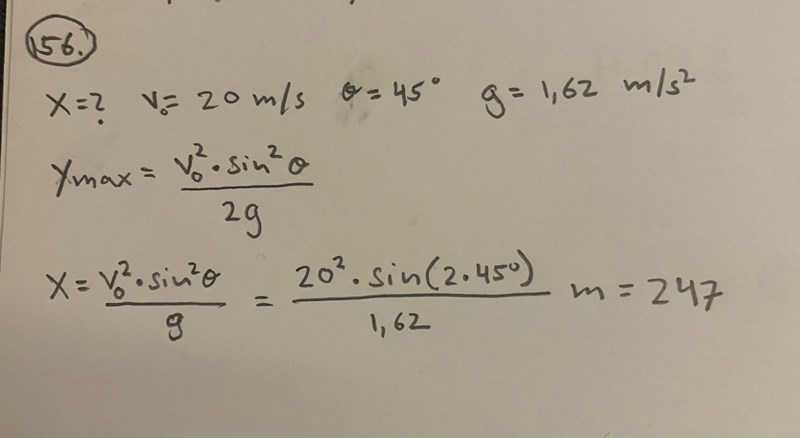 156.
X=? v₀= 20 m/s θ= 45° g= 1,62 m/s²
Ymax = v₀²·sin²θ / 2g
X= v₀²·sin²θ / g = 20²·sin(2·45°) / 1,62 m = 247